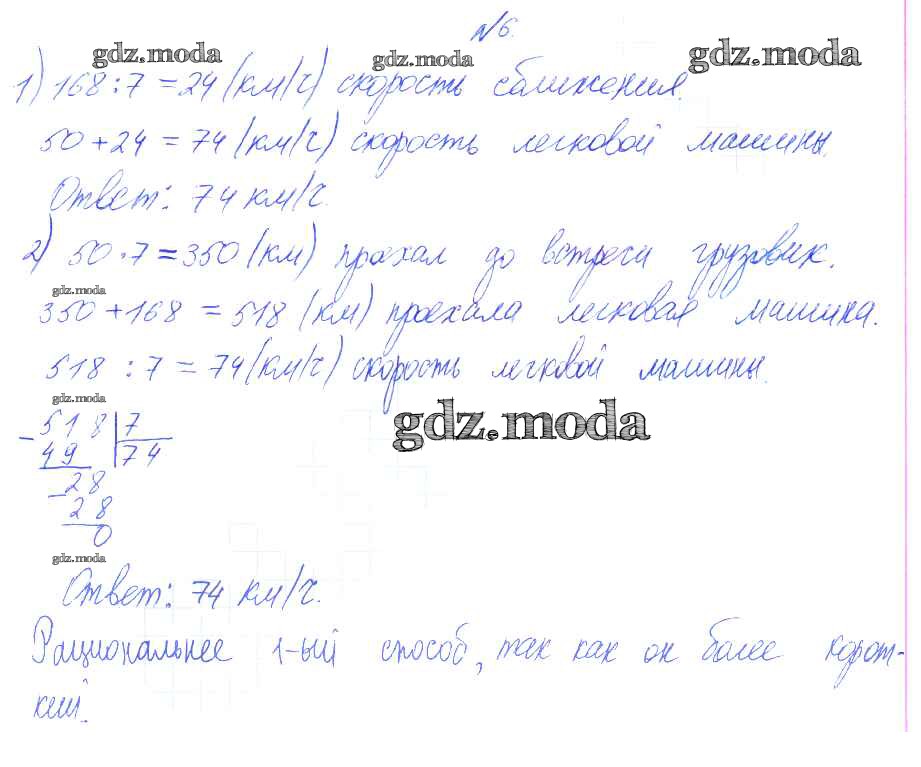 №6.
gdz.moda gdz.moda gdz.moda
1) 168 : 7 = 24 (км/ч) скорость сближения.
50 + 24 = 74 (км/ч) скорость легковой машины.
Ответ: 74 км/ч.
2) 50 · 7 = 350 (км) проехал до встречи грузовик.
gdz.moda
350 + 168 = 518 (км) проехала легковая машина.
518 : 7 = 74 (км/ч) скорость легковой машины.
gdz.moda
gdz.moda
518 | 7
49 | 74
28
28
0
gdz.moda
Ответ: 74 км/ч.
Рациональнее 1-ый способ, так как он более корот-
кий.